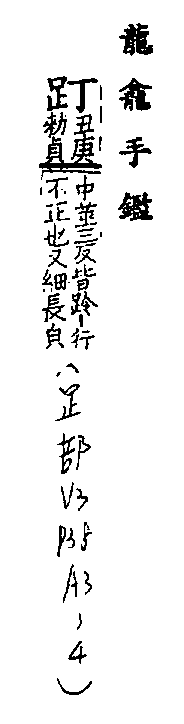 龍龕手鑑
䟓丑庚勑貞中莖三反皆跉丨行不正也又細長皃
(足部V3P35A3,4)